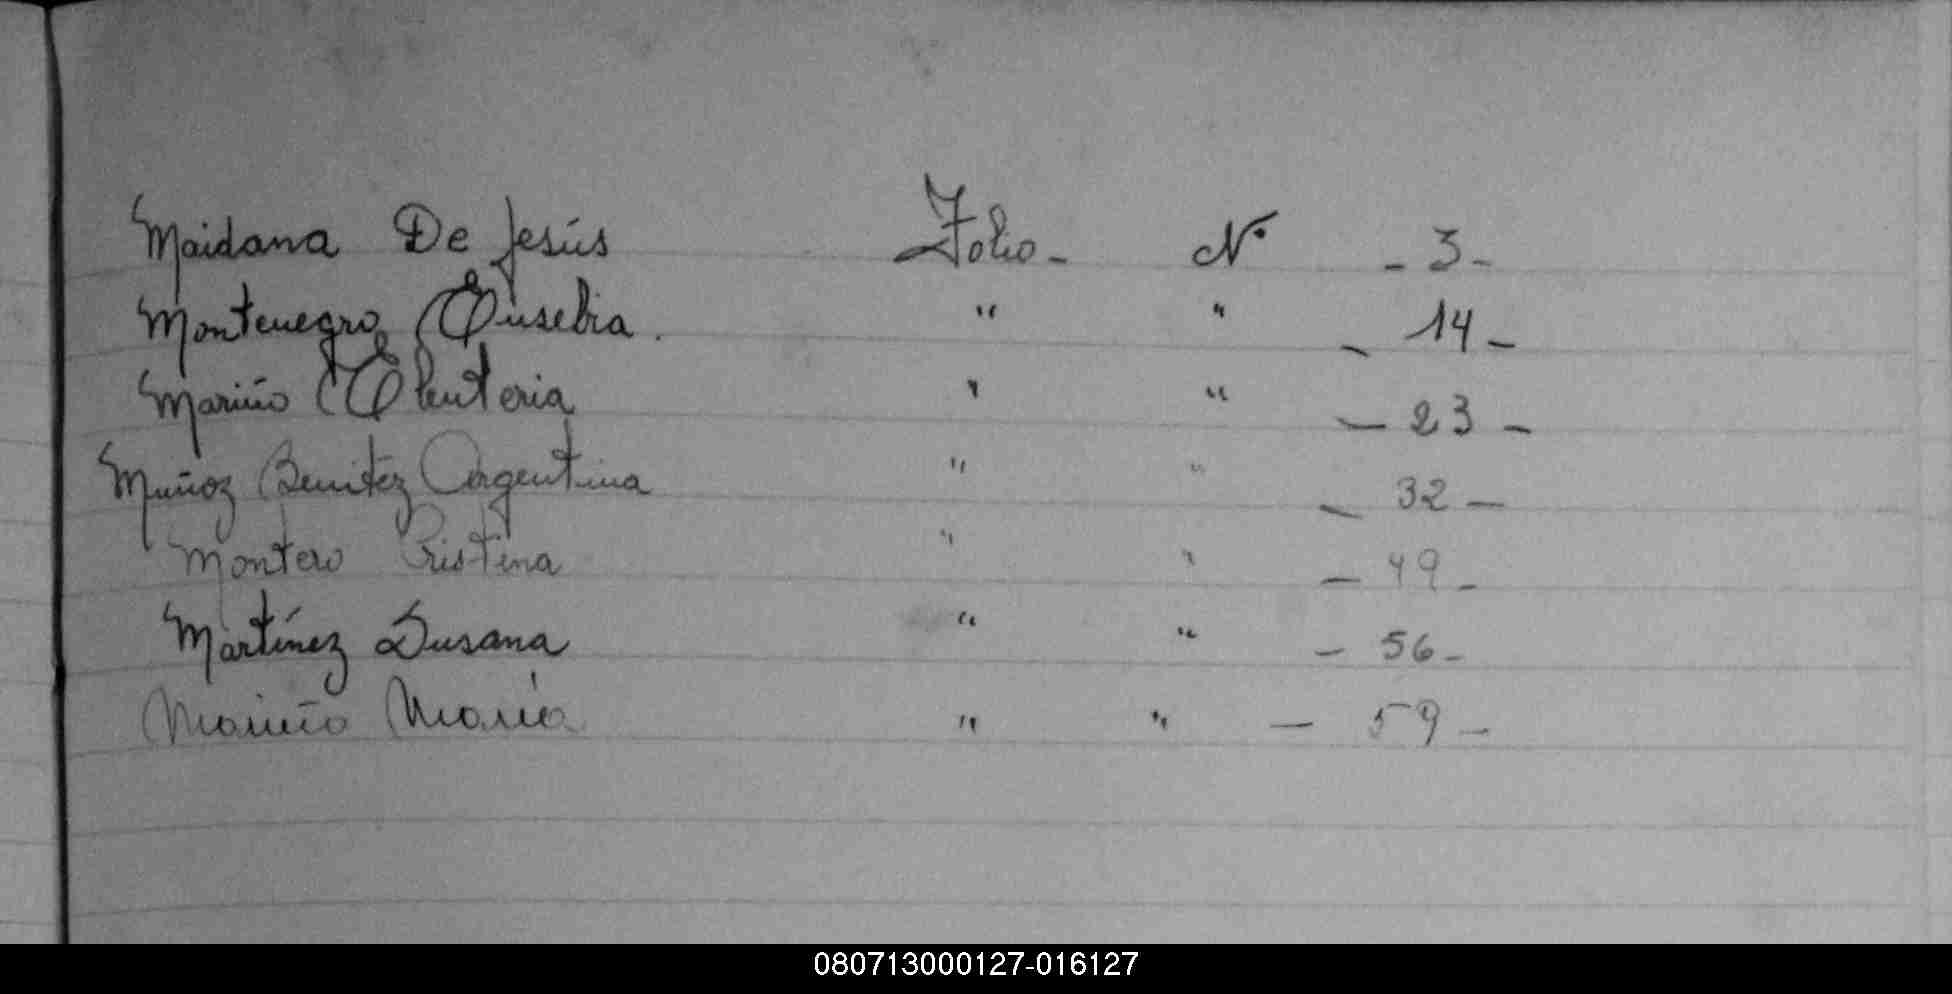 Maidana De Jesús Folio - Nº - 3 -
Montenegro Eusebia . " " - 14 -
Mariño Eleuteria " " - 23 -
Muñoz Benitez Argentina " " - 32 -
Montero Cristina " " - 49 -
Martínez Susana " " - 56 -
Mariño María " " - 59 -
080713000127-016127